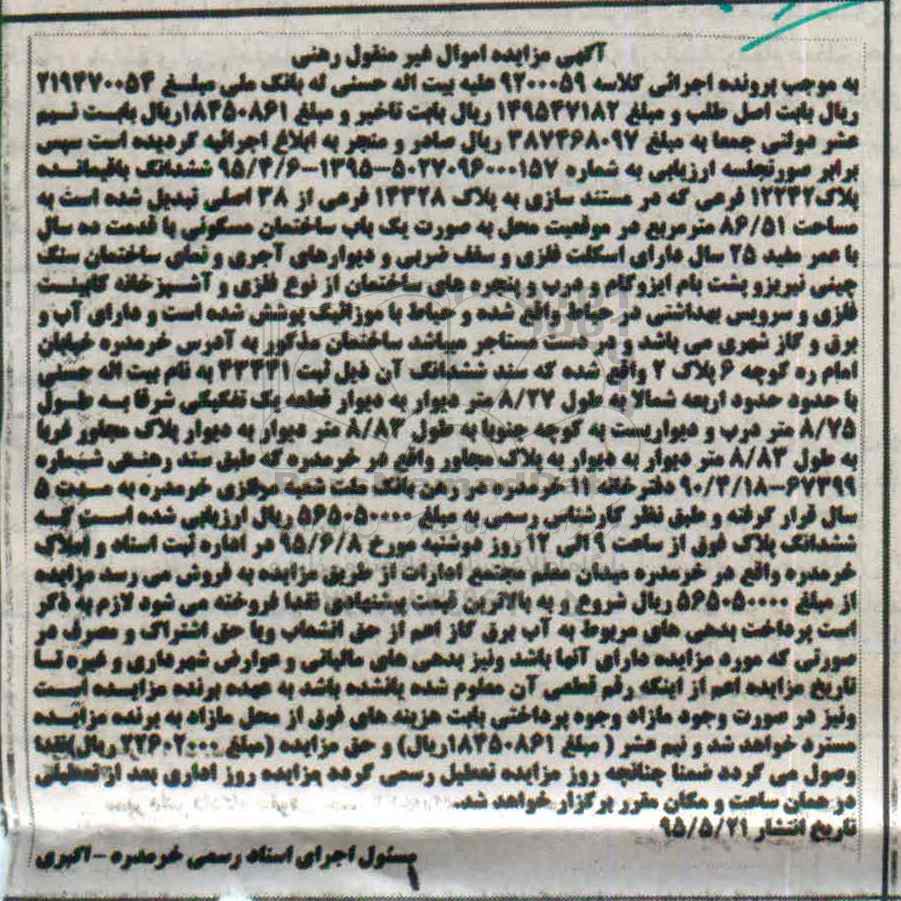 آگهی مزایده اموال غیر منقول رهنی
به موجب پرونده اجرائی کلاسه ۹۲۰۰۰۵۹ علیه بیت اله حسنی له بانک ملی مبلغ ۲۱۹۴۷۰۰۵۴
ریال بابت اصل طلب و مبلغ ۱۴۹۵۴۷۱۸۲ ریال بابت تاخیر و مبلغ ۱۸۴۵۰۸۶۱ریال بابت نیم
عشر دولتی جمعا به مبلغ ۳۸۷۴۶۸۰۹۷ ریال صادر و منجر به ابلاغ اجرائیه گردیده است سپس
برابر صورتجلسه ارزیابی به شماره ۱۳۹۵-۵۰۲۷۰۹۶۰۰۰۱۵۷-۹۵/۴/۶ ششدانگ باقیمانده
پلاک۱۲۲۴۲ فرعی که در مستند سازی به پلاک ۱۳۳۲۸ فرعی از ۳۸ اصلی تبدیل شده است به
مساحت ۸۶/۵۱ مترمربع در موقعیت محل به صورت یک باب ساختمان مسکونی با قدمت ده سال
با عمر مفید ۲۵ سال دارای اسکلت فلزی و سقف ضربی و دیوارهای آجری و نمای ساختمان سنگ
چینی نیریزو پشت بام ایزوگام و درب و پنجره های ساختمان از نوع فلزی و آشپزخانه کابینت
فلزی و سرویس بهداشتی در حیاط واقع شده و حیاط با موزائیک پوشش شده است و دارای آب و
برق و گاز شهری می باشد و در دست مستاجر میباشد ساختمان مذکور به آدرس خرمدره خیابان
امام ره کوچه ۶ پلاک ۲ واقع شده که سند ششدانگ آن ذیل ثبت ۳۳۴۳۱ به نام بیت اله حسنی
با حدود حدود اربعه شمالا به طول ۸/۲۷ متر دیوار به دیوار قطعه یک تفکیکی شرقا به طول
۸/۷۵ متر درب و دیواریست به کوچه جنوبا به طول ۸/۸۳ متر دیوار به دیوار پلاک مجاور غربا
به طول ۸/۸۳ متر دیوار به دیوار به پلاک مجاور واقع در خرمدره که طبق سند رهنی شماره
۶۷۳۹۹-۹۰/۴/۱۸ دفترخانه ۱۱ خرمدره در رهن بانک ملت شعبه مرکزی خرمدره به مدت ۵
سال قرار گرفته و طبق نظر کارشناس رسمی به مبلغ ۵۶۵۰۵۰۰۰۰ ریال ارزیابی شده است که
ششدانگ پلاک فوق از ساعت ۹ الی ۱۲ روز دوشنبه مورخ ۹۵/۶/۸ در اداره ثبت اسناد و املاک
خرمدره واقع در خرمدره میدان معلم مجتمع ادارات از طریق مزایده به فروش می رسد مزایده
از مبلغ ۵۶۵۰۵۰۰۰۰ ریال شروع و به بالاترین قیمت پیشنهادی نقدا فروخته می شود لازم به ذکر
است پرداخت بدهی های مربوط به آب برق گاز اعم از حق انشعاب ویا حق اشتراک و مصرف در
صورتی که مورد مزایده دارای آنها باشد ونیز بدهی های مالیاتی و عوارض شهرداری و غیره تا
تاریخ مزایده اعم از اینکه رقم قطعی آن معلوم شده یانشده باشد به عهده برنده مزایده است
ونیز در صورت وجود مازاد وجوه پرداختی بابت هزینه های فوق از محل مازاد به برنده مزایده
مسترد خواهد شد و نیم عشر ( مبلغ ۱۸۴۵۰۸۶۱ریال) و حق مزایده (مبلغ ۲۲۶۰۲۰۰۰ ریال)نقدا
وصول می گردد ضمنا چنانچه روز مزایده تعطیل رسمی گردد مزایده روز اداری بعد از تعطیلی
در همان ساعت و مکان مقرر برگزار خواهد شد.
تاریخ انتشار ۹۵/۵/۲۱
مسئول اجرای اسناد رسمی خرمدره -اکبری